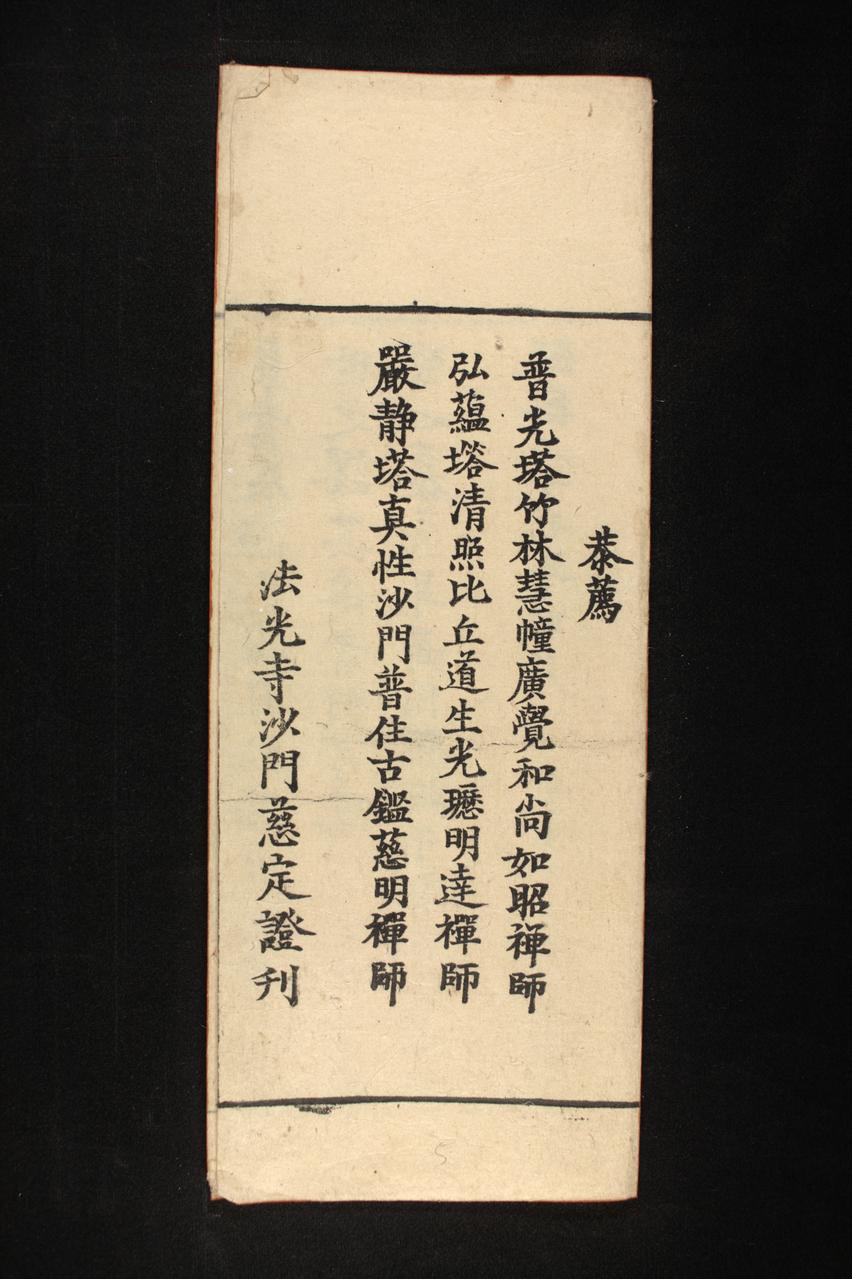 恭薦
普光塔竹林慧幢廣覺和尚如昭禅師
弘蘊塔清照比丘道生光瓑明達禪師
嚴静塔真性沙門普住古鑑慈明禪師
法光寺沙門慈定證刊
5